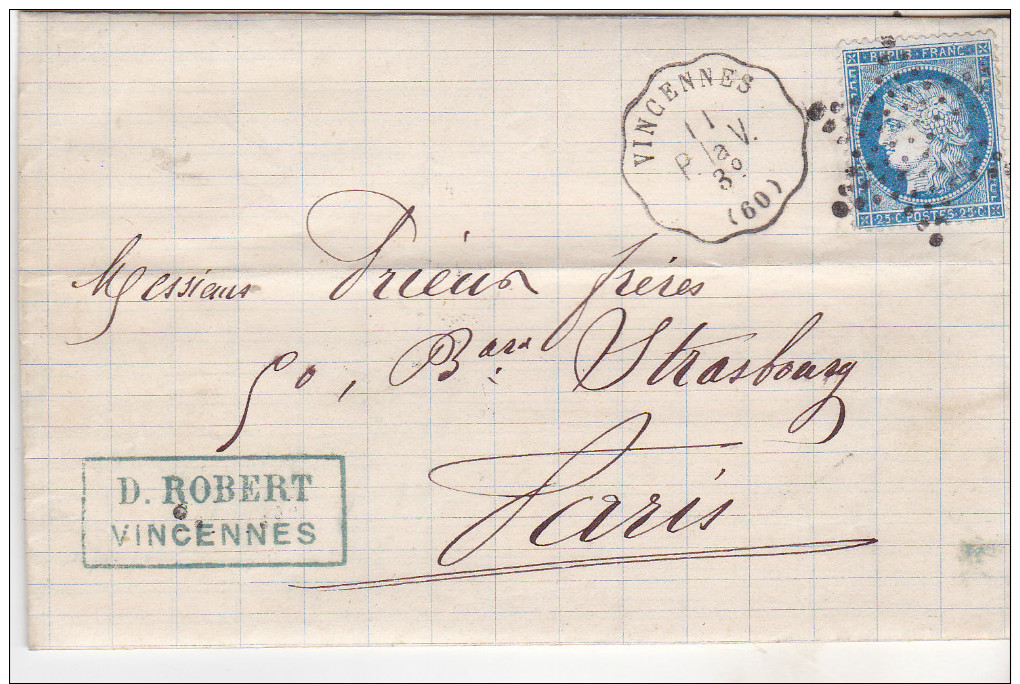 REPUB·FRANC
25·C·POSTES·25·C
VINCENNES
11
P. à V.
3º
(60)
Messieurs Drieux frères
50, Bard Strasbourg
Paris
D. ROBERT
VINCENNES